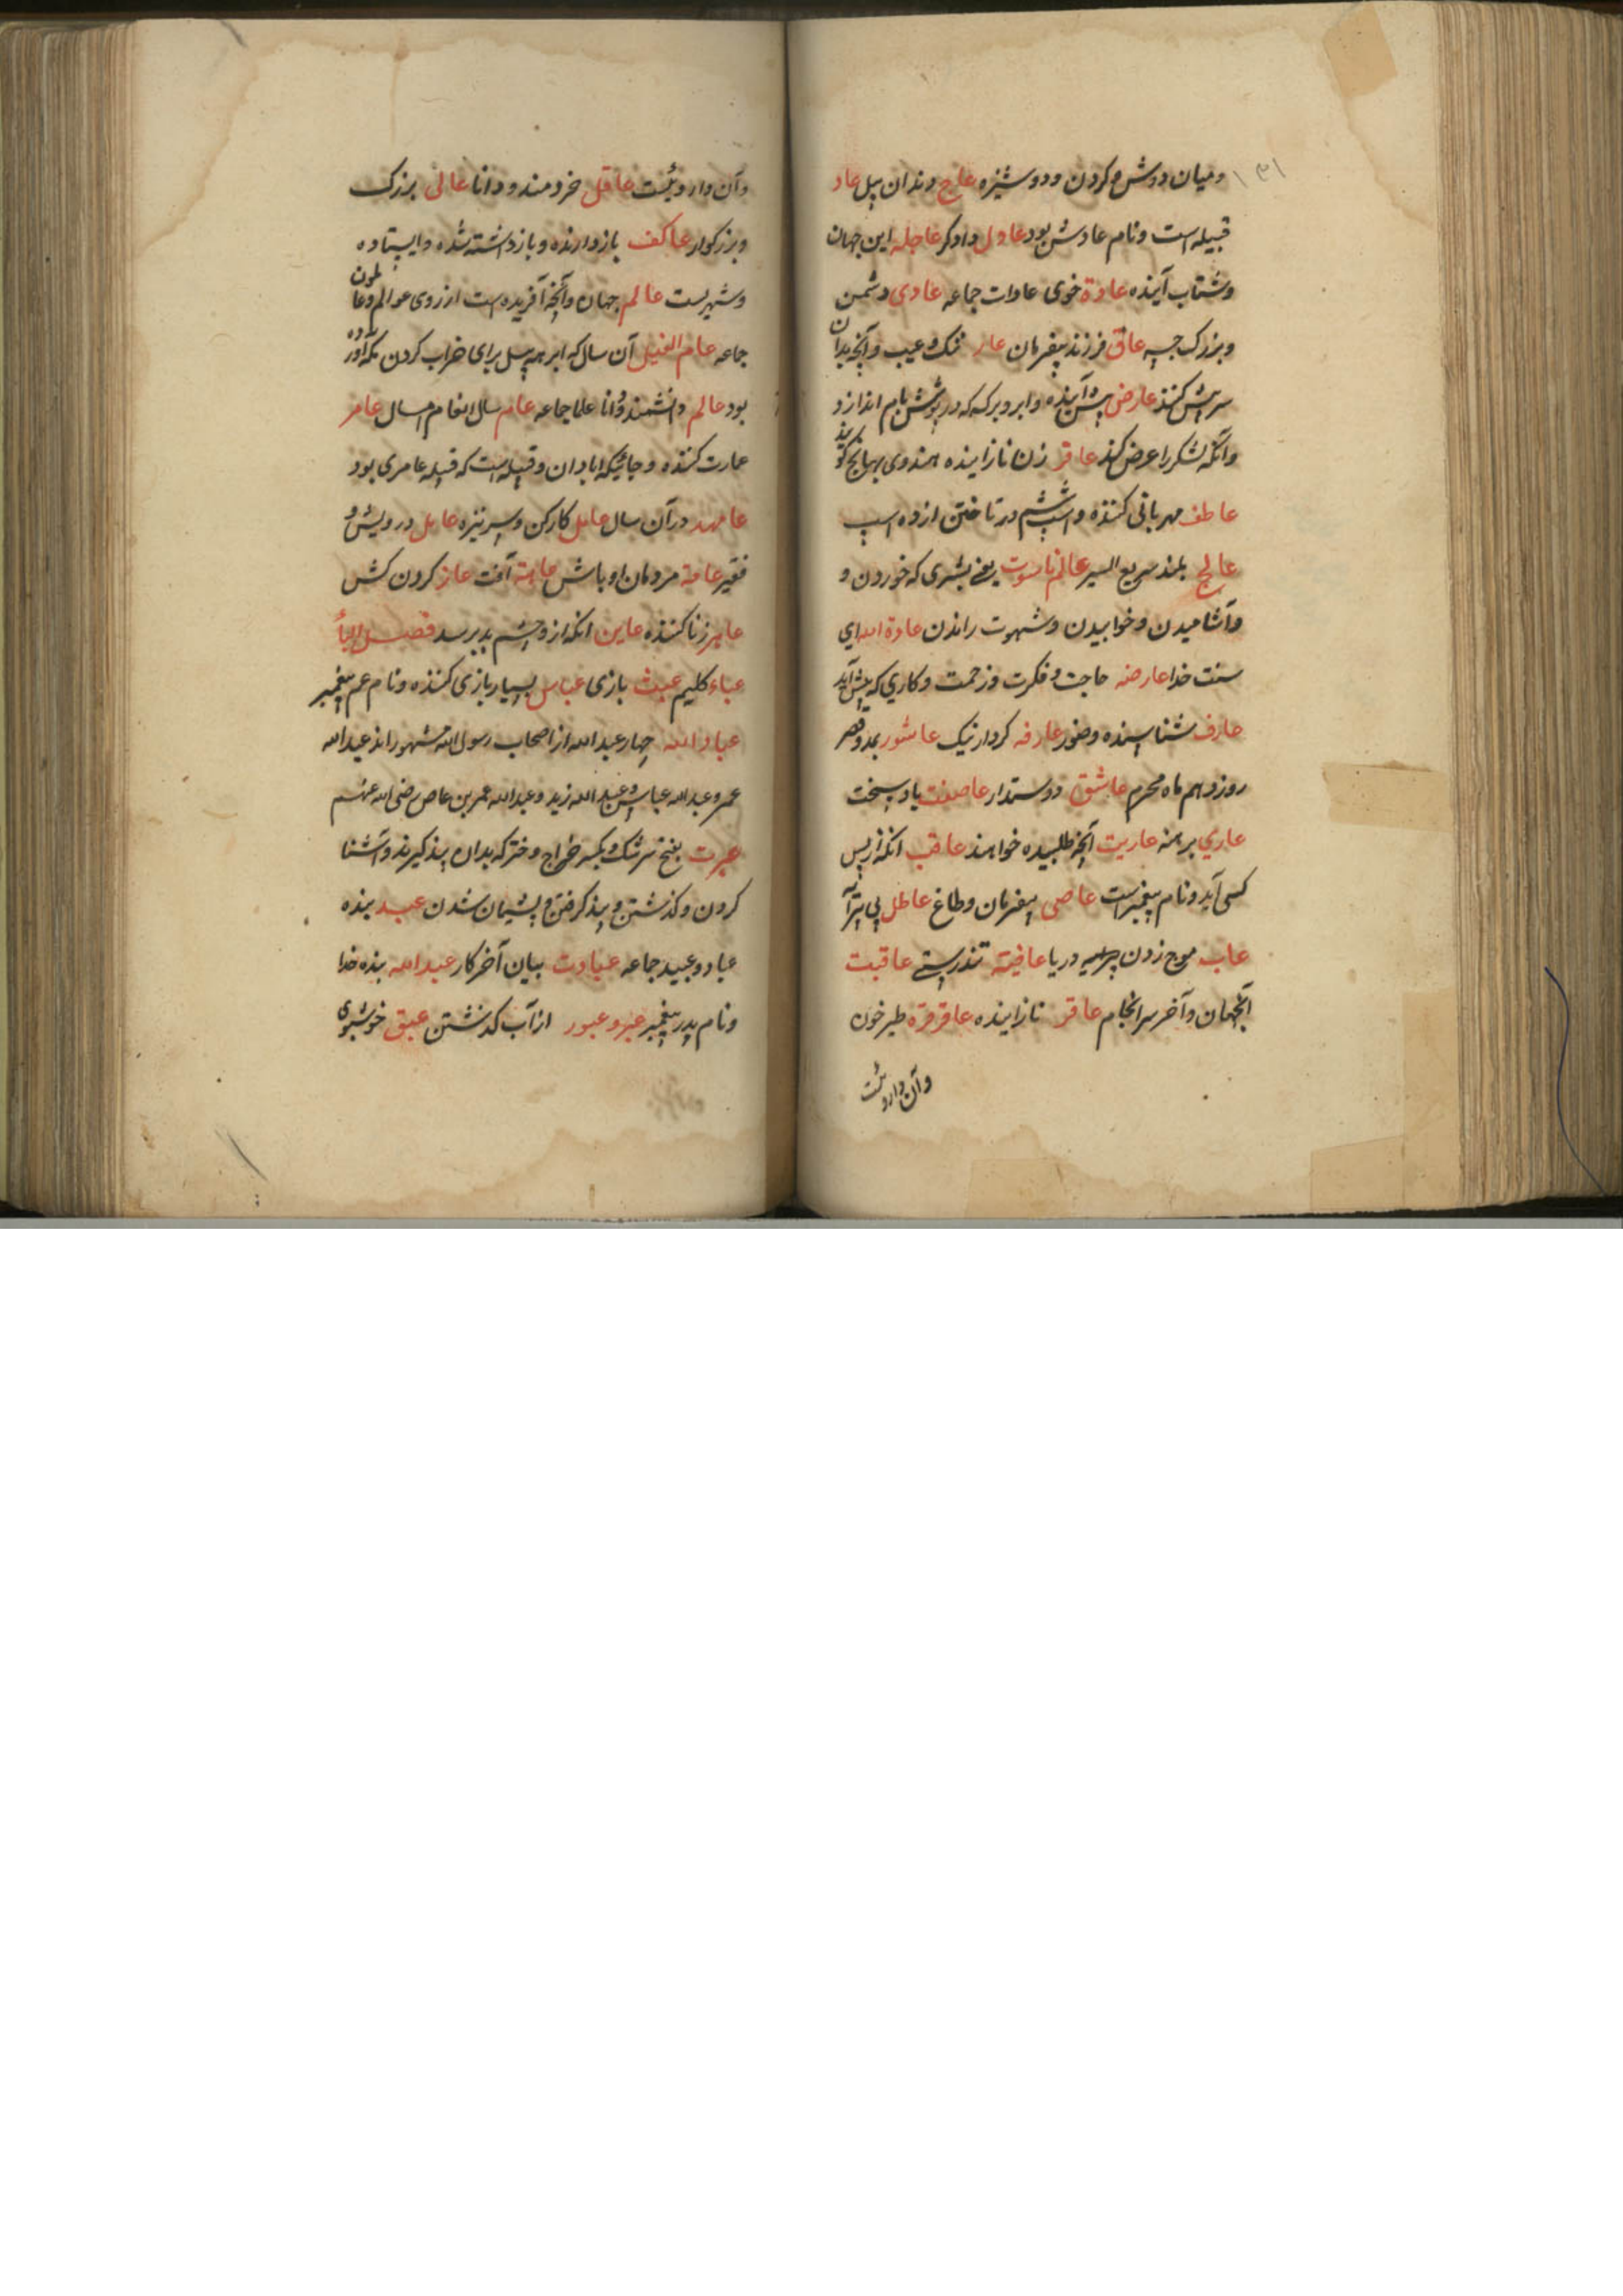 ۱۳۱
ومیان دوش و کردن ودوشیزه عاج دندان پیل عاد
قبیله است ونام عادش بود عادل دادکر عاجله این جهان
وشتاب آینده عادة خوی عادات جماعه عادی دشمن
وبزرک جسیه عاق فرزند بیفرمان عار ننک وعیب وآنچه بدان
سریش کنند عارض پیش آینده وابر وبرکه که در پوشش بام اندازد
وآنکه لشکر را عرض کند عاقر زن نازاینده هندوی بهانج کویند
عاطف مهربانی کننده واسپ ششم در تاختن از ده اسپ
عالج بلند سریع السیر عالم ناسوت یعنی بشری که خوردن و
وآشامیدن وخوابیدن وشهوت راندن عادة الله ای
سنت خدا عارضه حاجت وفکرت وزحمت وکاری که پیش آید
عارف شناسنده وصبور عارفه کردار نیک عاشور بمد وقصر
روز دهم ماه محرم عاشق دوستدار عاصفت باد سخت
عاری برهنه عاریت آنچه طلبیده خواهند عاقب آنکه از پس
کسی آید ونام پیغمبر است عاصی بیفرمان وطاغ عاطل بی پیرایه
عاب موج زدن دریا عافیته تندرستی عاقبت
آنجهان وآخر سرانجام عاقر نازاینده عاقرقره طیرخون
وآن داروئیست
وآن داروئیست عاقل خردمند ودانا عالی بزرک
وبزرکوار عاکف بازدارنده وبازداشته شده وایستاده
وشهریست عالم جهان وآنچه آفریده است از روی عوالم وعالمون
جماعه عام الفیل آن سال که ابرهه پیل برای خراب کردن مکه آورده
بود عالم دانشمند ودانا علما جماعه عام سال انعام امسال عامر
عمارت کننده وجائیکه ابادان وقبیله است که قبیله عامری بود
عامهد در آن سال عامل کارکن وسر نیزه عایل درویش و
فقیر عامة مردمان اوباش عاهة آفت عاز کردن کش
عاهر زنا کننده عاین انکه از وچشم بد برسد فصل الباء
عباء کلیم عبث بازی عباس بسیار بازی کننده ونام عم پیغمبر
عباد الله چهار عبد الله از اصحاب رسول الله مشهوراند عبد الله
عمر وعبد الله عباس وعبد الله زبد وعبد الله عمر بن عاص رضی الله عنهم
عبرت بفتح سرشک وبکسر خراج وخترکه بدان پند کیرند وآشنا
کردن وکذشتن وپند کرفتن وپشیمان شدن عبد بنده
عباد وعبید جماعه عبادت بیان آخر کار عبد الله بنده خدا
ونام پدر پیغمبر عبر وعبور از آب کذشتن عبق خوشبوی